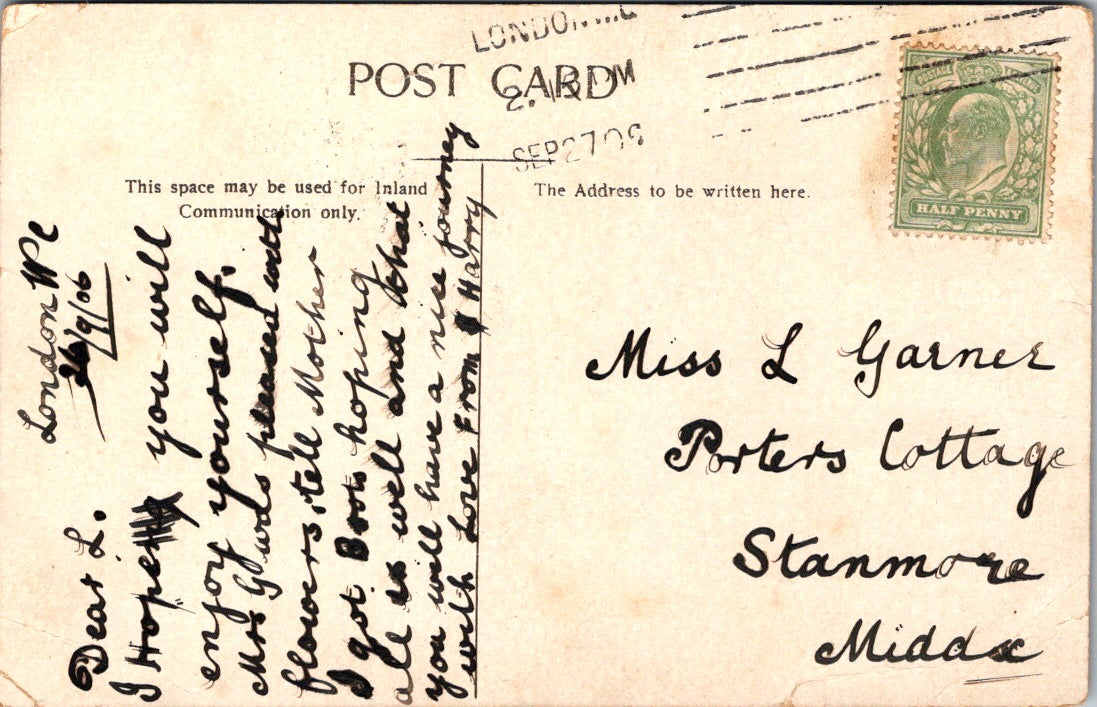 POST CARD
LONDON W.C
2. PM
SEP 27 06
HALF PENNY
This space may be used for Inland
Communication only.
The Address to be written here.
London WC
26/9/06
Dear L.
I Hope you will
enjoy yourself.
Mrs pleased with
flowers, tell Mother
I got Boots hoping
all is well and that
you will have a nice journey
with Love From Harry
Miss L Garner
Porters Cottage
Stanmore
Middx